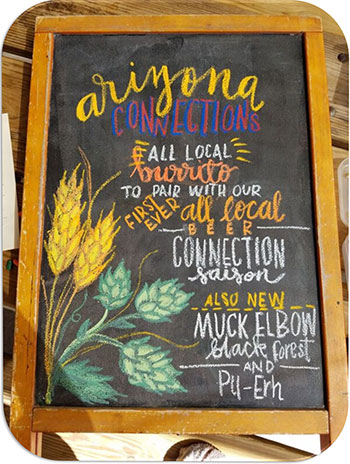 arizona
CONNECTIONS
ALL LOCAL
burrito
TO PAIR WITH OUR
FIRST EVER all local
BEER
CONNECTION
saison
ALSO NEW
MUCK ELBOW
black forest
AND
PU-Erh